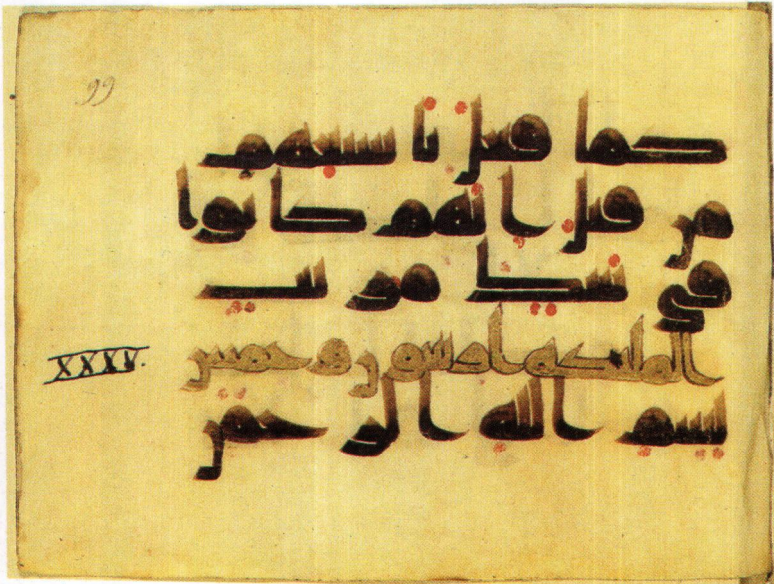 99
كما فعل باشيعهم
من قبل انهم كانوا
في شك مريب
الملئكة اربعون وخمس
XXXV.
بسم الله الرحمن